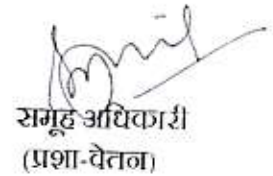 समूह अधिकारी
(प्रशा-वेतन)